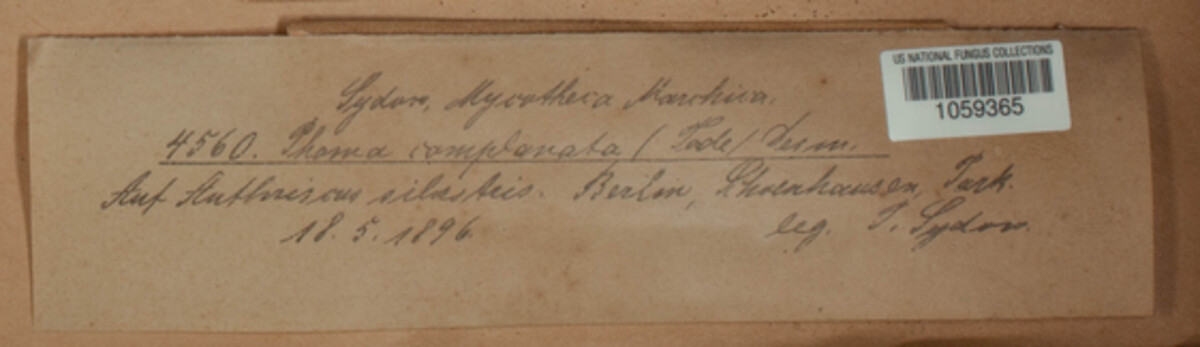 US NATIONAL FUNGUS COLLECTIONS
1059365
Sydow, Mycotheca Marchica.
4560. Phoma complanata (Tode) Desm.
Auf Anthriscus silvestris. Berlin, Schoenhausen, Park.
18.5.1896. leg. P. Sydow.